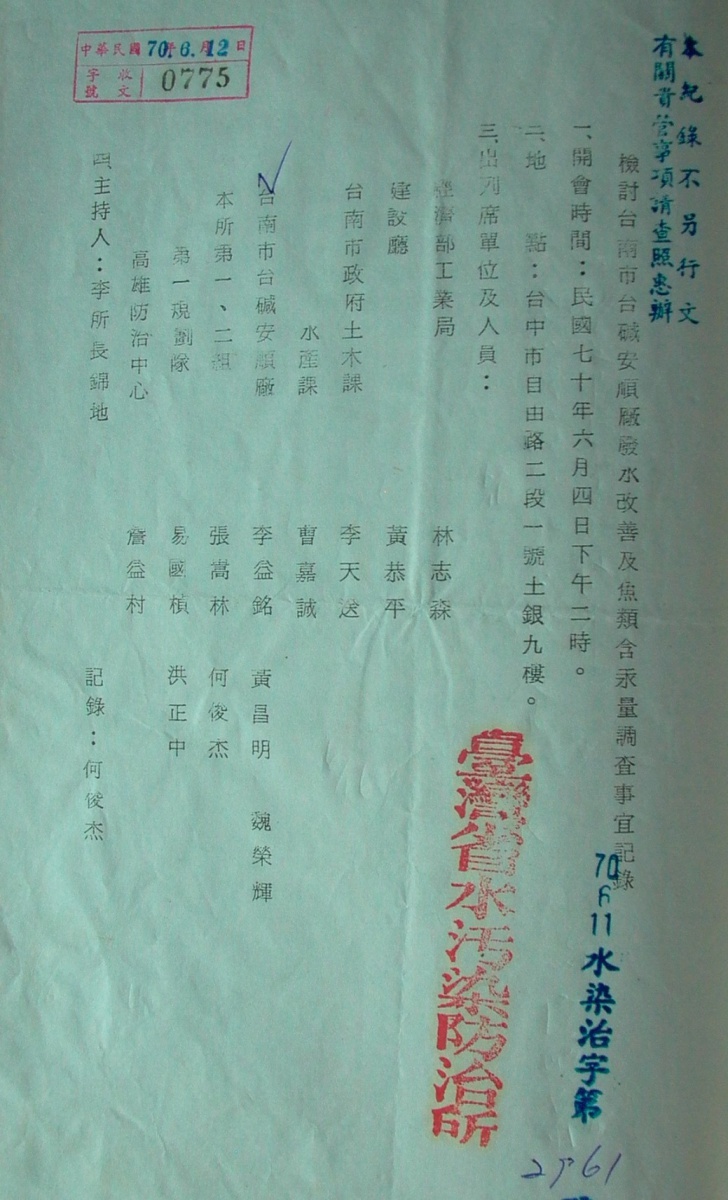 本紀錄不另行文
有關貴管事項請查照惠辦
檢討台南市台碱安順廠廢水改善及魚類含汞量調查事宜記錄
70 6 11 水染治字第
2961
一、開會時間：民國七十年六月四日下午二時。
二、地點：台中市自由路二段一號土銀九樓。
三、出列席單位及人員：
臺灣省水污染防治所
經濟部工業局 林志森
建設廳 黃恭平
台南市政府土木課 李天送
水產課 曹嘉誠
台南市台碱安順廠 李益銘 黃昌明 魏榮輝
本所第一、二組 張嵩林 何俊杰
第一規劃隊 易國楨 洪正中
高雄防治中心 詹益村
四、主持人：李所長錦地 記錄：何俊杰
中華民國70年6月12日
收文 字號 0775